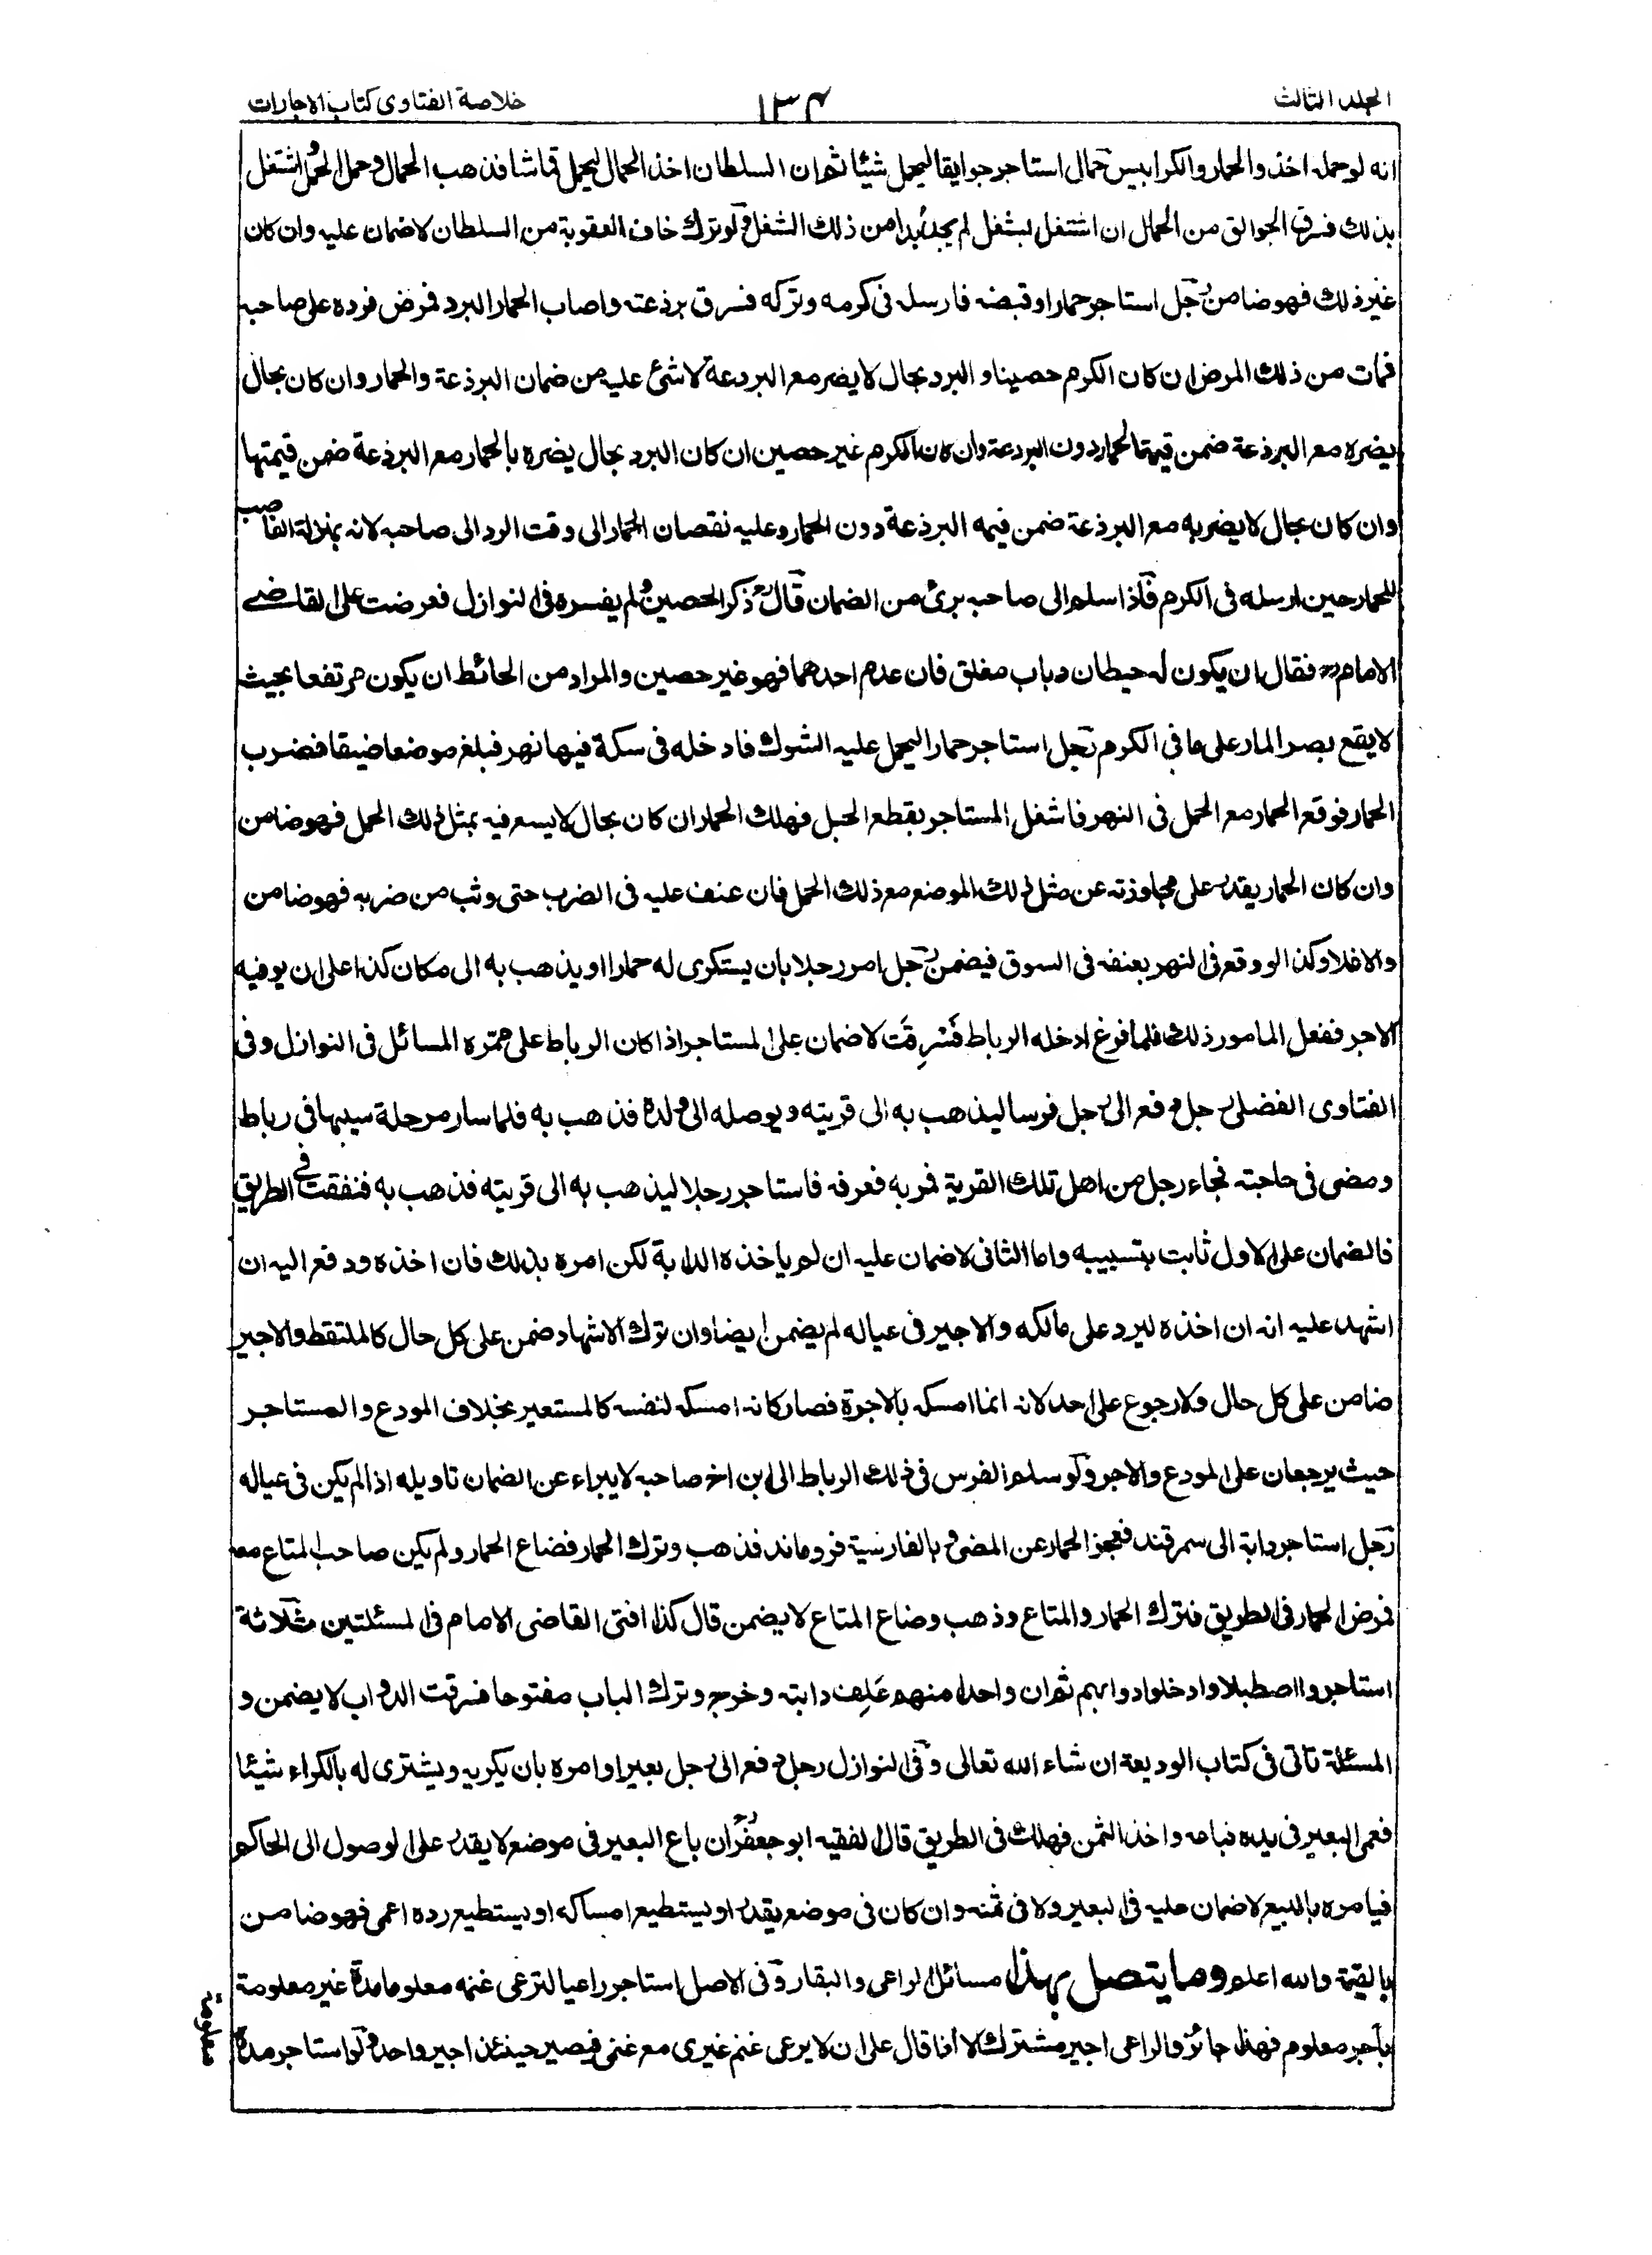 الجلد الثالث
١٣٤
خلاصة الفتاوى كتاب الاجارات
انه لو حمله اخذ والحمار والكرابيس حمال استاجر جواليقا ليحمل شيئا ثم ان السلطان اخذ الحمال ليحمل قماشا فذهب الحمال وحمل الحمل اشتغل
بذلك فسرق الجوالق من الحمال ان اشتغل لبشغل لم يجد بدا من ذلك الشغل ولو ترك خاف العقوبة من السلطان لا ضمان عليه وان كان
غير ذلك فهو ضامن رجل استاجر حمارا وقبضه فارسله فى كرمه وتركه فسرق برذعته واصاب الحمار البرد فمرض فرده على صاحبه
فمات من ذلك المرض ان كان الكرم حصينا والبرد بحال لا يضر مع البردعة لا شئ عليه من ضمان البرذعة والحمار وان كان بحال
يضره مع البرذعة ضمن قيمة الحمار دون البردعة وان كان الكرم غير حصين ان كان البرد بحال يضره بالحمار مع البرذعة ضمن قيمتها
وان كان بحال لا يضر به مع البرذعة ضمن قيمه البرذعة دون الحمار وعليه نقصان الحمار الى وقت الرد الى صاحبه لانه بمنزلة الغاصب
للحمار حين ارسله فى الكرم فاذا سلم الى صاحبه برئ من الضمان قال رح ذكر الحصين ولم يفسره فى النوازل فعرضت على القاضے
الامام رح فقال ان يكون له حيطان وباب مغلق فان عدم احدهما فهو غير حصين والمراد من الحائط ان يكون مرتفعا بحيث
لا يقع بصر المار على ما فى الكرم رجل استاجر حمارا ليحمل عليه الشوك فادخله فى سكة فيها نهر فبلغ موضعا ضيقا فضرب
الحمار فوقع الحمار مع الحمل فى النهر فاشغل المستاجر بقطع الحبل فهلك الحمار ان كان بحال لا يسع فيه بمثل ذلك الحمل فهو ضامن
وان كان الحمار يقدر على مجاوزته عن مثل ذلك الموضع مع ذلك الحمل فان عنف عليه فى الضرب حتى وثب من ضربه فهو ضامن
والا فلا وكذا لو وقع فى النهر بعنفه فى السوق فيضمن رجل امر رجلا بان يستكرى له حمارا او يذهب به الى مكان كذا على ان يوفيه
الاجر ففعل المامور ذلك فلما فرغ ادخله الرباط فسرقت لا ضمان على المستاجر اذا كان الرباط على ممره المسائل فى النوازل وفى
الفتاوى الفضلى رجل دفع الى رجل فرسا ليذهب به الى قريته ويوصله الى ولده فذهب به فلما سار مرحلة سيبها فى رباط
ومضى فى حاجته فجاء رجل من اهل تلك القرية فمر به فعرفه فاستاجر رجلا ليذهب به الى قريته فذهب به فنفقت فے الطريق
فالضمان على الاول ثابت بتسييبه واما الثانى لا ضمان عليه ان لم ياخذه الدابة لكن امره بذلك فان اخذه ودفع اليه ان
اشهد عليه انه ان اخذه ليرد على مالكه والاجير فى عياله لم يضمن ايضا وان ترك الاشهاد ضمن على كل حال كالملتقط والاجير
ضامن على كل حال ولا رجوع على احد لانه انما امسكه بالاجرة فصار كانه امسكه لنفسه كالمستعير بخلاف المودع والمستاجر
حيث يرجعان على المودع والاجر ولو سلم الفرس فى ذلك الرباط الى ابن اخ صاحبه لا يبراء عن الضمان تاويله اذا لم يكن فى عياله
رجل استاجر دابة الى سمرقند فعجز الحمار عن المضى وبالفارسية فروماند فذهب وترك الحمار فضاع الحمار ولم يكن صاحب المتاع معه
فمرض الحمار فى الطريق فترك الحمار والمتاع وذهب وضاع المتاع لا يضمن قال كذا افتى القاضى الامام فى المسئلتين ثلاثة
استاجروا اصطبلا وادخلوا دوابهم ثم ان واحدا منهم علف دابته وخرج وترك الباب مفتوحا فسرقت الدواب لا يضمن و
المسئلة تاتى فى كتاب الوديعة ان شاء الله تعالى وفى النوازل رجل دفع الى رجل بعيرا وامره بان يكريه ويشترى له بالكراء شيئا
فعمى البعير فى يده فباعه واخذ الثمن فهلك فى الطريق قال الفقيه ابو جعفر رح ان باع البعير فى موضع لا يقدر على الوصول الى الحاكم
فيامره بالبيع لا ضمان عليه فى البعير ولا فى ثمنه وان كان فى موضع يقدر او يستطيع امساكه او يستطيع رده اعمى فهو ضامن
بالقيمة والله اعلم وما يتصل بهذا مسائل الراعى والبقار وفى الاصل استاجر راعيا لترعى غنمه معلوما مدة غير معلومة
بأجر معلوم فهذا جائز والراعى اجير مشترك الا اذا قال على ان لا يرعى غنم غيرى مع غنمى فيصير حينئذ اجير واحد ولو استاجر مدة
معلومة